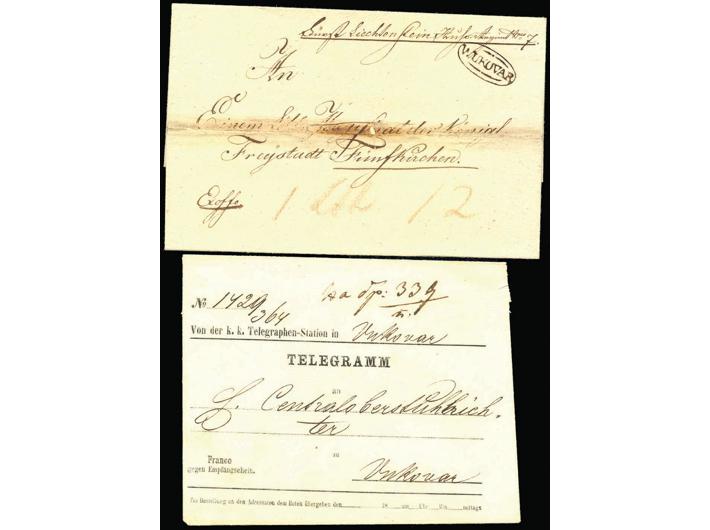 Fürst Liechtenstein Hus. Regiment No 7.
WUKUVAR
An
Einem Löbl. Magistrat der Königl.
Freystadt Fünfkirchen.
Exoffo.
1 Loth 12
№ 1429/364
339
Von der k. k. Telegraphen-Station in Vukovar
TELEGRAMM
an
H. Centraloberstuhlrich-
ter
zu
Franco
gegen Empfangschein.
Vukovar
Zur Bestellung an den Adressaten dem Boten übergeben den 18 um Uhr Min. mittags